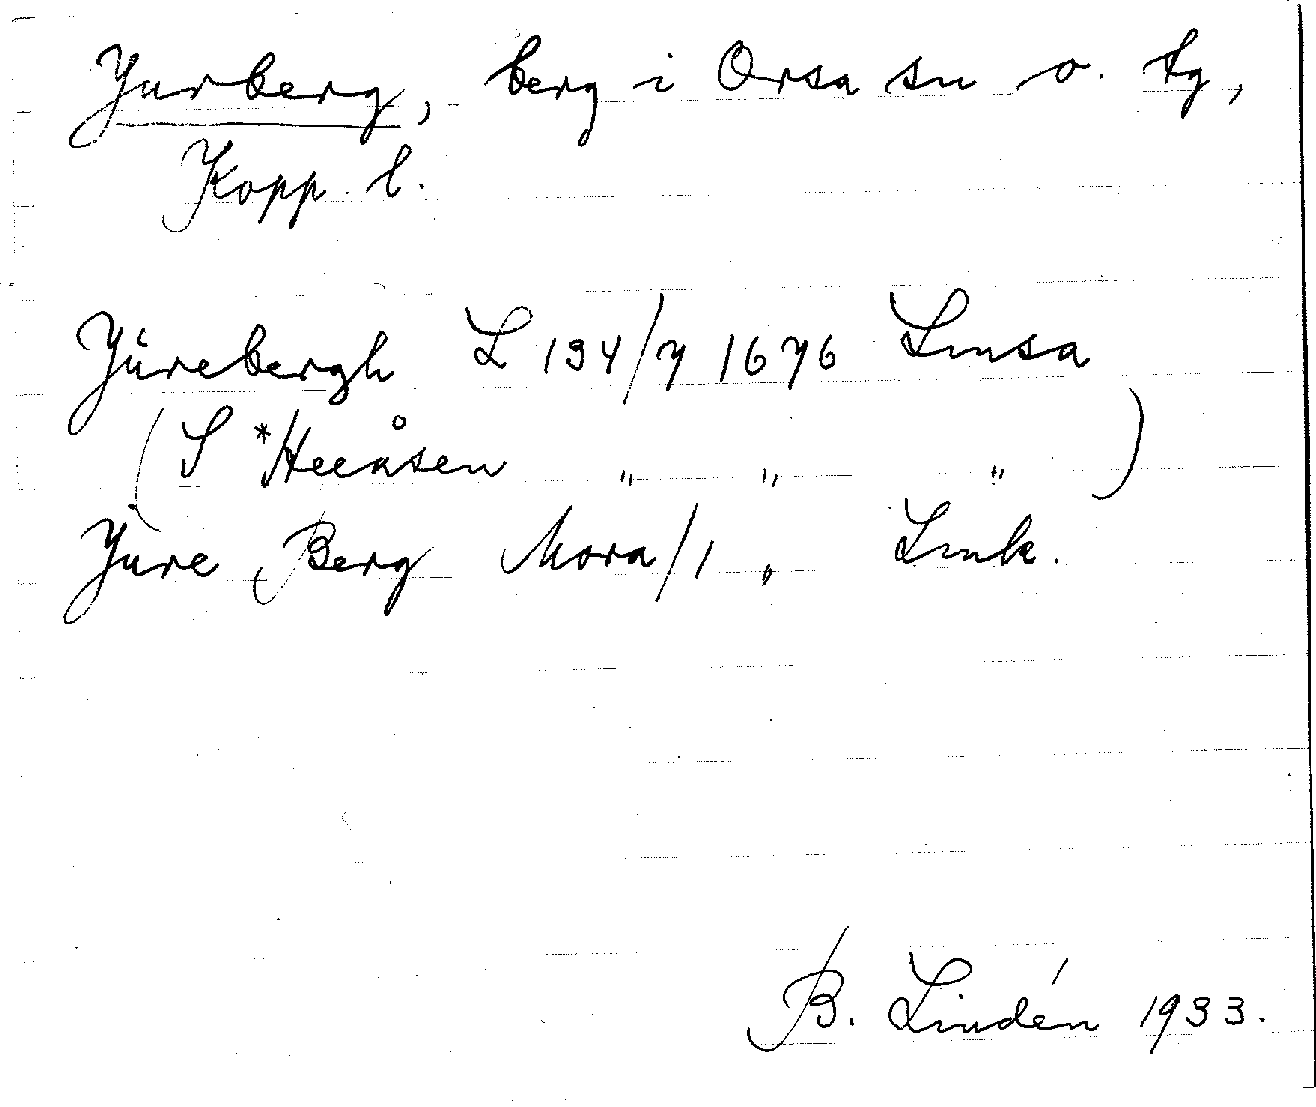 Yurberg, berg i Orsa sn o. tg,
Kopp. l.
Yůrebergh L 134/7 1676 Lmsa
(S *Heeåsen " " ")
Yure Berg Mora/1 " Lmk.
B. Lindén 1933.